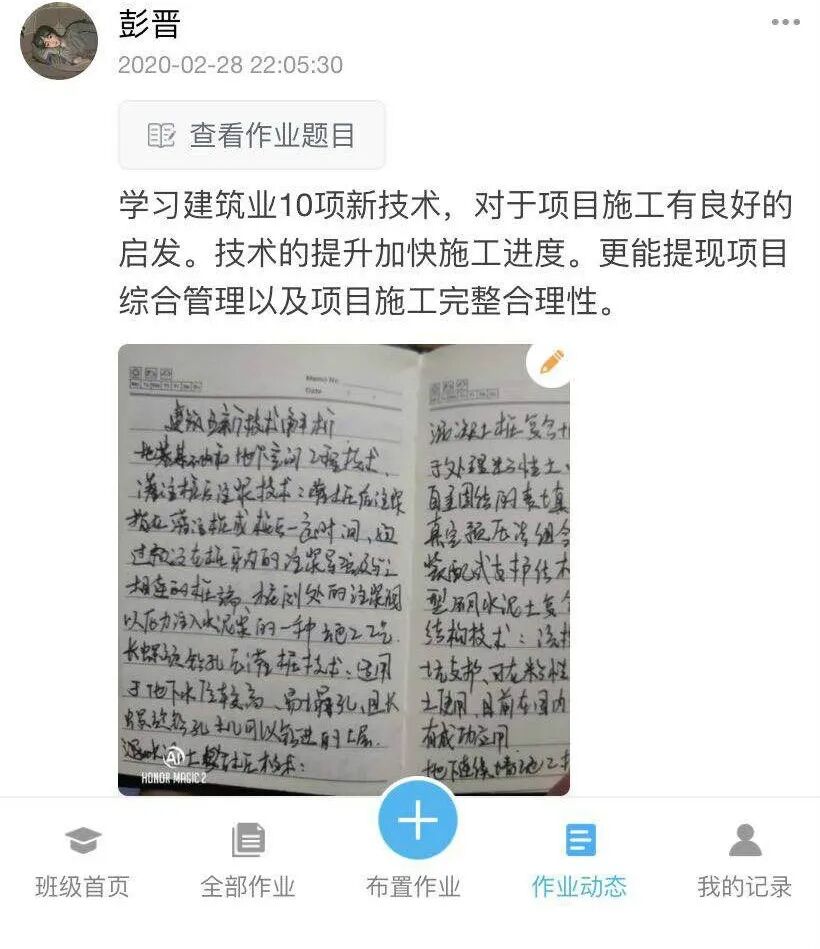 彭晋
2020-02-28 22:05:30
查看作业题目
学习建筑业10项新技术，对于项目施工有良好的
启发。技术的提升加快施工进度。更能提现项目
综合管理以及项目施工完整合理性。
Memo No.
Date
地基基础和地下空间工程技术.
灌注桩后注浆技术：灌注桩后注浆
指在灌注桩成桩后一定时间,通
过预设在桩身内的注浆导管及与之
相连的桩端、桩侧处的注浆阀
以压力注入水泥浆的一种施工工艺.
长螺旋钻孔压灌桩技术：适用
于地下水位较高、易塌孔,且长
螺旋钻孔机可以钻进的土层.
混凝土桩复合
于处理粘性土、
自重固结的素土填
真空预压法组合
装配式支护结构
型钢水泥土复合
结构技术：
坑支护、可在粘性
土使用,目前在国内
有成功应用
地下连续墙施工
AI
HONOR MAGIC 2
班级首页
全部作业
布置作业
作业动态
我的记录